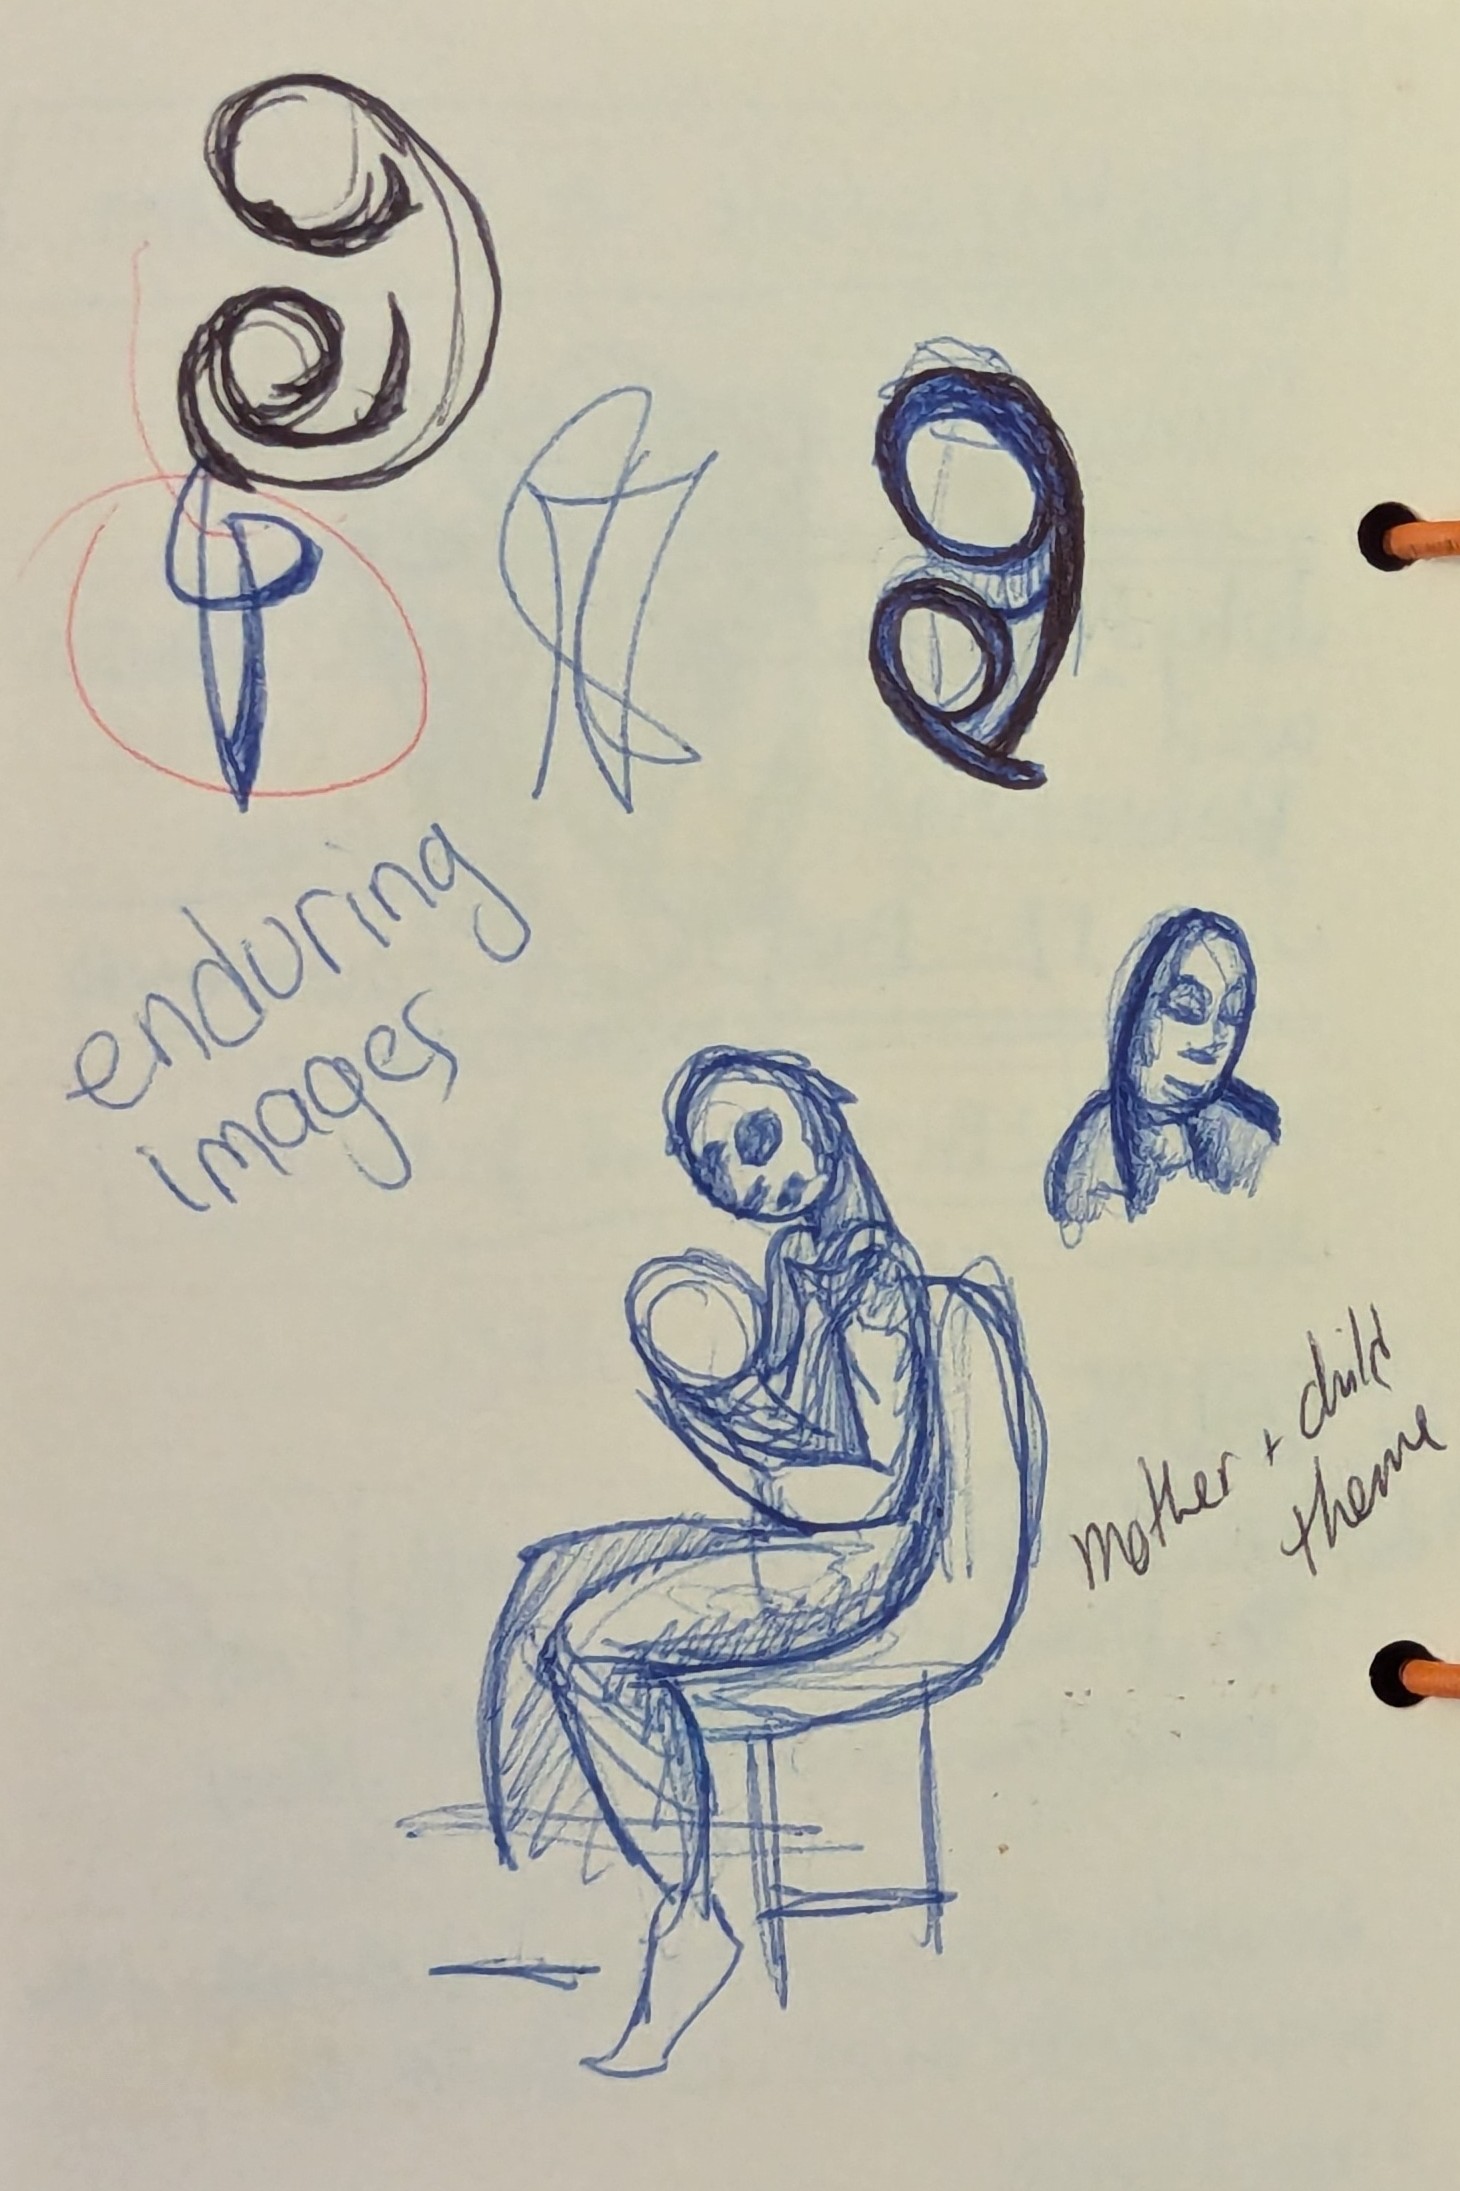 enduring
images
mother + child
theme